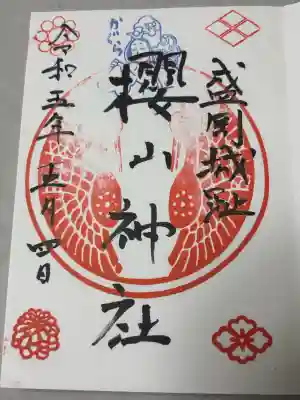 盛岡城址
櫻山神社
かぐら
令和五年十二月四日